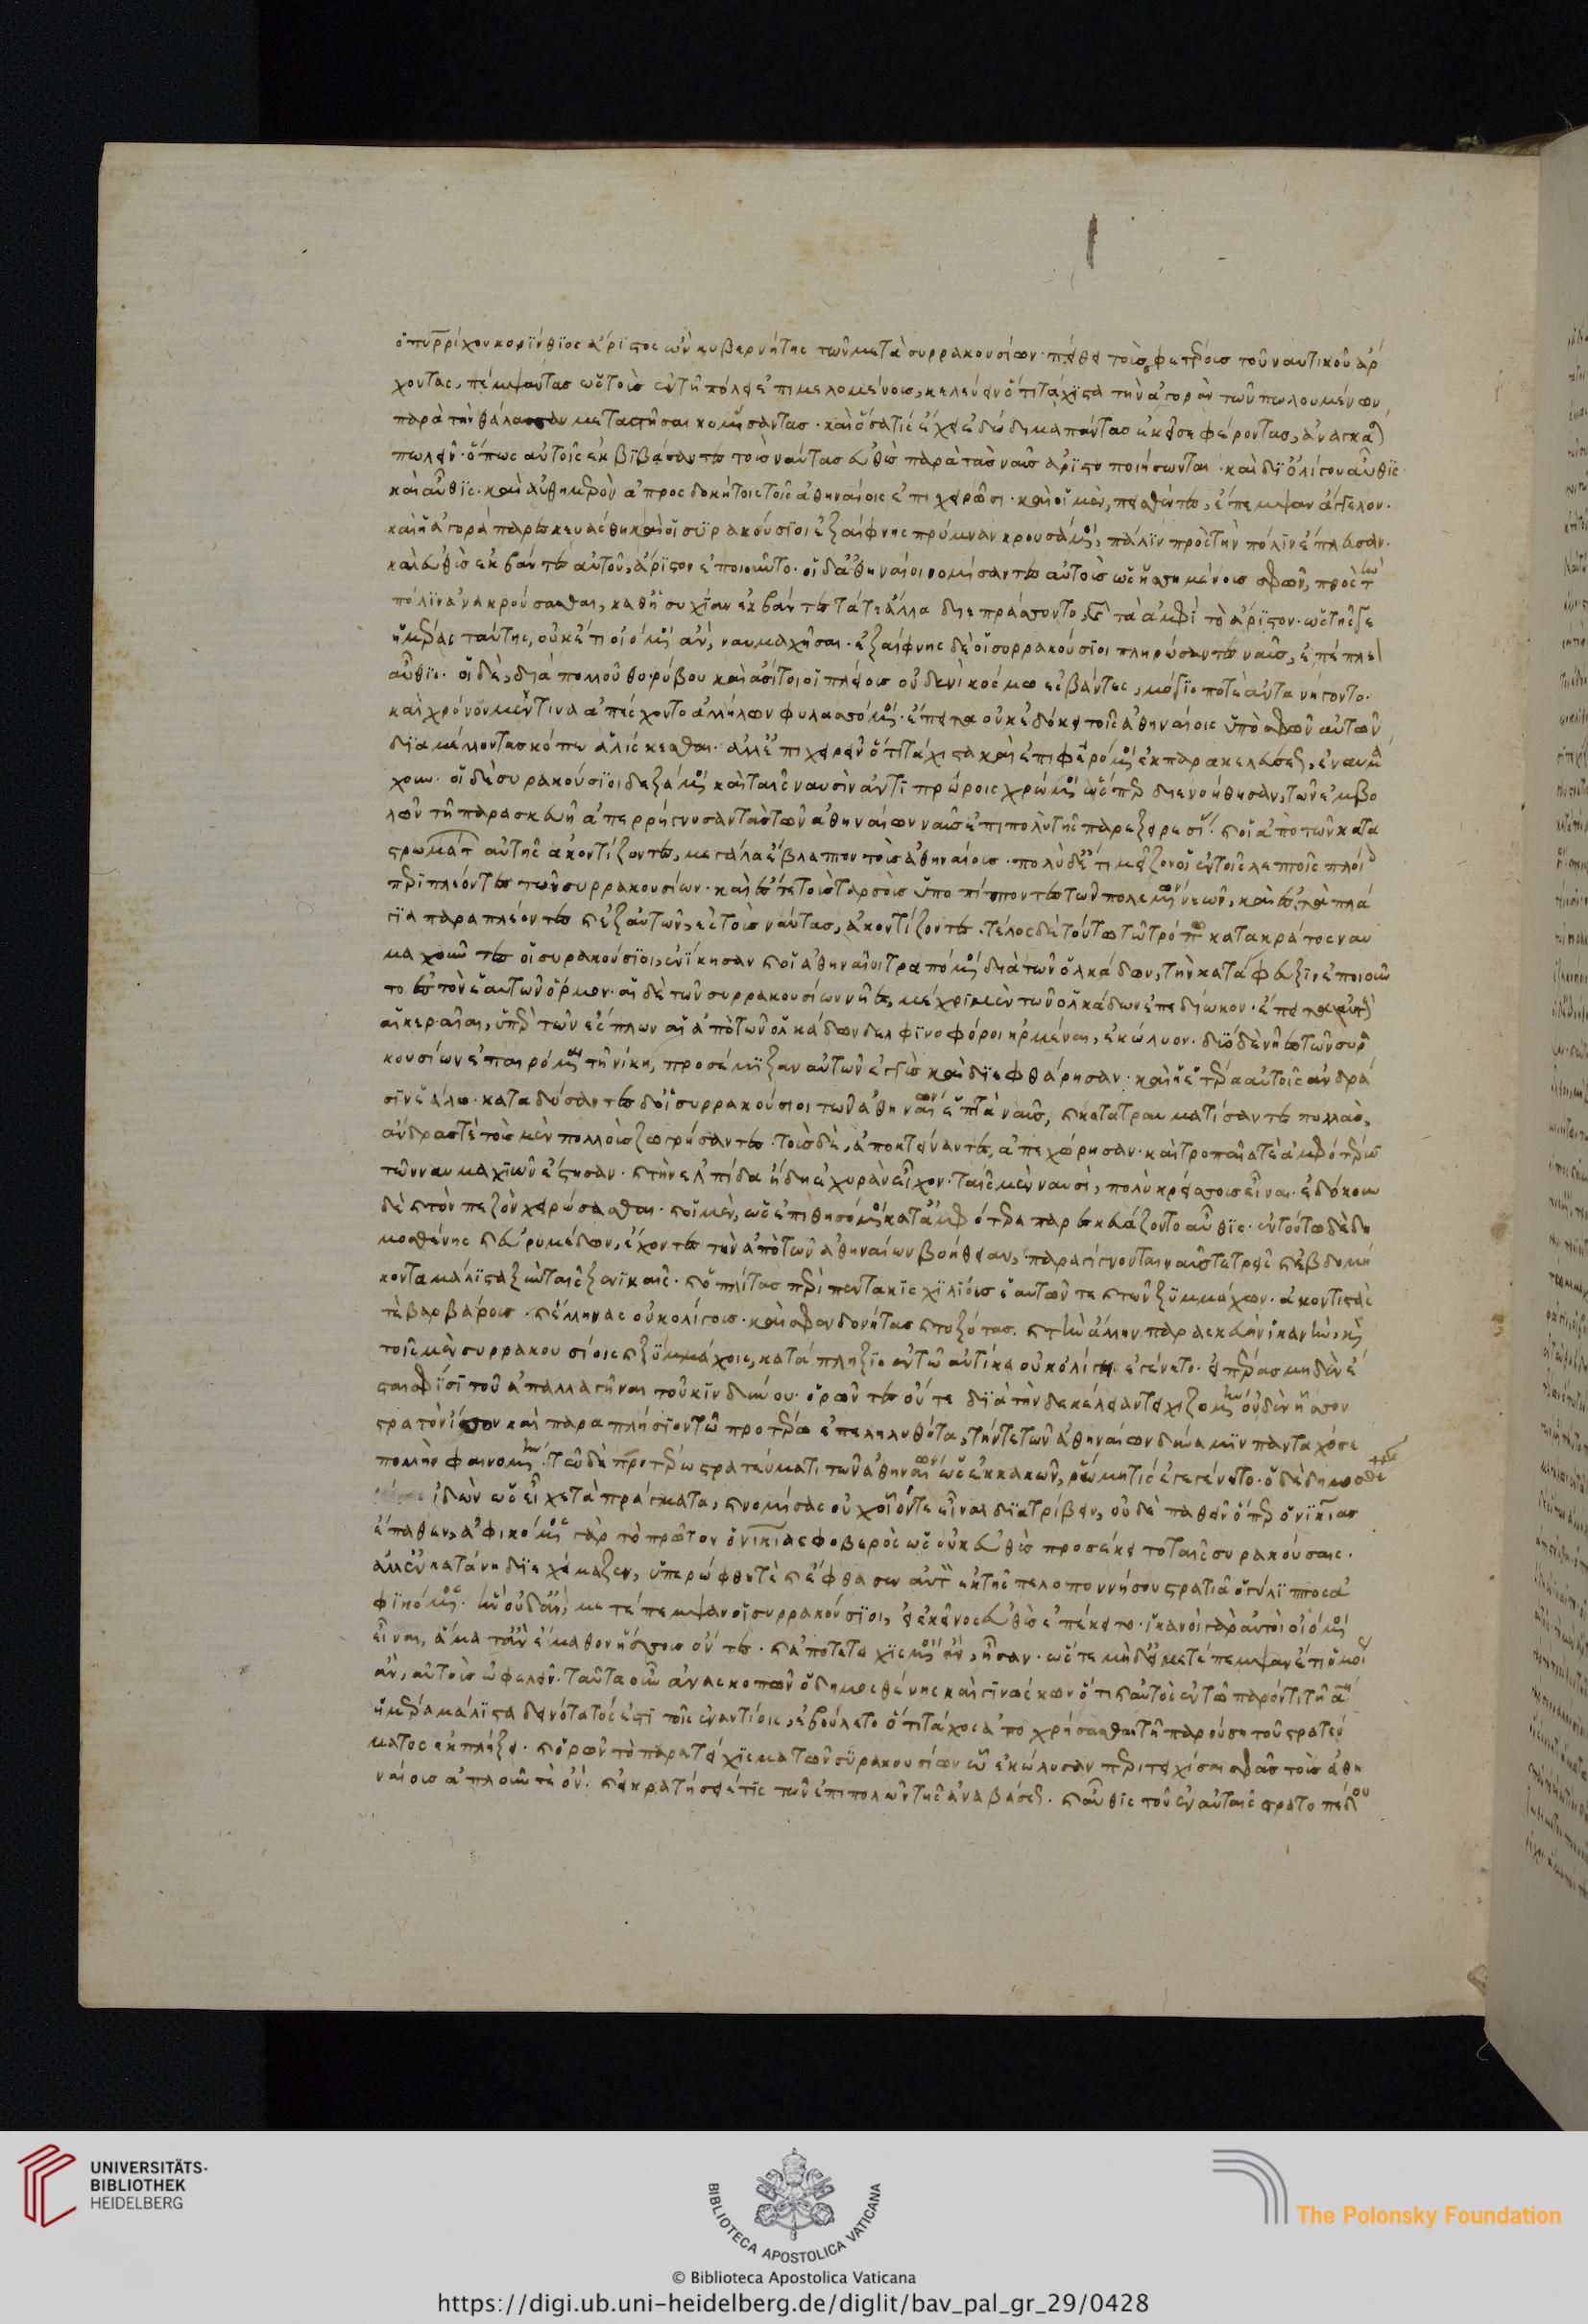 ὁ πυρρίχου κορίνθιος ἄριστος ὢν κυβερνήτης τῶν μετὰ συρρακουσίων· πείθει τοὺς σφετέρους τοῦ ναυτικοῦ ἄρ
χοντας, πέμψαντας ὡς τοὺς ἐν τῇ πόλει ἐπιμελομένους, κελεύειν ὅτι τάχιστα τὴν ἀγορὰν τῶν πωλουμένων
παρὰ τὴν θάλασσαν μεταστῆσαι κομίσαντας· καὶ ὅσα τις ἔχει ἐδώδιμα πάντας ἐκεῖσε φέροντας, ἀναγκάσαι
πωλεῖν· ὅπως αὐτοῖς ἐκβιβάσαντες τοὺς ναύτας εὐθὺς παρὰ τὰς ναῦς ἄριστον ποιήσωνται· καὶ δι' ὀλίγου αὖθις
καὶ αὖθις· καὶ αὐθημερὸν ἀπροσδοκήτοις τοῖς ἀθηναίοις ἐπιχειρῶσι· καὶ οἱ μὲν, πεισθέντες, ἔπεμψαν ἄγγελον·
καὶ ἡ ἀγορὰ παρεσκευάσθη καὶ οἱ συρακούσιοι ἐξαίφνης πρύμναν κρουσάμενοι, πάλιν πρὸς τὴν πόλιν ἔπλευσαν·
καὶ εὐθὺς ἐκβάντες αὐτοῦ, ἄριστον ἐποιοῦντο· οἱ δ' ἀθηναῖοι νομίσαντες αὐτοὺς ὡς ἡσσημένους σφῶν, πρὸς τὴν
πόλιν ἀνακρούσασθαι, καθ' ἡσυχίαν ἐκβάντες τά τε ἄλλα διεπράσσοντο, καὶ τὰ ἀμφὶ τὸ ἄριστον· ὡς τῆς γε
ἡμέρας ταύτης, οὐκέτι οἰόμενοι ἂν, ναυμαχῆσαι· ἐξαίφνης δὲ οἱ συρρακούσιοι πληρώσαντες ναῦς, ἐπέπλεον
αὖθις· οἱ δὲ, διὰ πολλοῦ θορύβου καὶ ἄσιτοι οἱ πλείους οὐδενὶ κόσμω ἐσβάντες, μόγις ποτὲ ἀντανήγοντο·
καὶ χρόνον μέν τινα ἀπέσχοντο ἀλλήλων φυλασσόμενοι· ἔπειτα οὐκ ἐδόκει τοῖς ἀθηναίοις ὑπὸ σφῶν αὐτῶν
διαμέλλοντας κόπω ἁλίσκεσθαι· ἀλλ' ἐπιχειρεῖν ὅτι τάχιστα καὶ ἐπιφερόμενοι ἐκ παρακελεύσεως, ἐναυμά
χουν· οἱ δὲ συρακούσιοι δεξάμενοι καὶ ταῖς ναυσὶν ἀντιπρώροις χρώμενοι ὥσπερ διενοήθησαν, τῶν ἐμβό
λων τῇ παρασκευῇ ἀπερρήγνυσαν τὰς τῶν ἀθηναίων ναῦς ἐπιπολὺ τῆς παρεξειρεσίας· καὶ οἱ ἀπὸ τῶν κατα
στρωμάτων αὐτῆς ἀκοντίζοντες, μεγάλα ἔβλαπτον τοὺς ἀθηναίους· πολὺ δ' ἔτι μείζονα οἱ ἐν τοῖς λεπτοῖς πλοίοις
περιπλέοντες τῶν συρρακουσίων· καὶ ἔς τε τοὺς ταρσοὺς ὑποπίπτοντες τῶν πολεμίων νεῶν, καὶ ἐς τὰ πλά
για παραπλέοντες καὶ ἐξ αὐτῶν, ἐς τοὺς ναύτας, ἀκοντίζοντες. τέλος δὲ τούτω τῶ τρόπω κατὰ κράτος ναυ
μαχοῦντες οἱ συρακούσιοι, ἐνίκησαν καὶ οἱ ἀθηναῖοι τραπόμενοι διὰ τῶν ὁλκάδων, τὴν κατάφευξιν ἐποιοῦν
το ἐς τὸν ἑαυτῶν ὅρμον· αἱ δὲ τῶν συρρακουσίων νῆες, μέχρι μὲν τῶν ὁλκάδων ἐπεδίωκον· ἔπειτα αὐτοὺς
αἱ κεραῖαι, ὑπὲρ τῶν ἔσπλων αἱ ἀπὸ τῶν ὁλκάδων δελφινοφόροι ἠρμέναι, ἐκώλυον· δύο δὲ νῆες τῶν συρα
κουσίων ἐπαιρόμεναι τῇ νίκη, προσέμιξαν αὐτῶν ἐγγὺς καὶ διεφθάρησαν· καὶ ἡ ἑτέρα αὐτοῖς ἀνδρά
σιν ἑάλω· καταδύσαντες δ' οἱ συρρακούσιοι τῶν ἀθηναίων ἑπτὰ ναῦς, καὶ κατατραυματίσαντες πολλὰς,
ἄνδρας τὲ τοὺς μὲν πολλοὺς ζωγρήσαντες· τοὺς δὲ, ἀποκτείναντες, ἀπεχώρησαν· καὶ τροπαῖά τε ἀμφοτέρων
τῶν ναυμαχιῶν ἔστησαν· καὶ τὴν ἐλπίδα ἤδη ἐχυρὰν εἶχον· ταῖς μὲν ναυσὶ, πολὺ κρείσσους εἶναι· ἐδόκουν
δὲ καὶ τὸν πεζὸν χειρώσασθαι· καὶ οἱ μὲν, ὡς ἐπιθησόμενοι κατ' ἀμφότερα παρεσκευάζοντο αὖθις· ἐν τούτω δὲ δη
μοσθένης καὶ εὐρυμέδων, ἔχοντες τὴν ἀπὸ τῶν ἀθηναίων βοήθειαν, παραγίγνονται ναῦς τε τρεῖς καὶ ἑβδομή
κοντα μάλιστα ξὺν ταῖς ξενικαῖς· καὶ ὁπλίτας περὶ πεντακισχιλίους ἑαυτῶν τε καὶ τῶν ξυμμάχων· ἀκοντιστάς
τὲ βαρβάρους· καὶ ἕλληνας οὐκ ὀλίγους· καὶ σφενδονήτας καὶ τοξότας. καὶ τὴν ἄλλην παρασκευὴν ἱκανὴν, καὶ
τοῖς μὲν συρρακουσίοις καὶ ξυμμάχοις, κατάπληξις ἐν τῶ αὐτίκα οὐκ ὀλίγη ἐγένετο· εἰ πέρας μηδὲν ἔ
σται σφίσι τοῦ ἀπαλλαγῆναι τοῦ κινδύνου· ὁρῶντες οὔτε διὰ τὴν δεκέλειαν τειχιζομένην οὐδὲν ἧσσον
στρατὸν ἴσον καὶ παραπλήσιον τῶ προτέρω ἐπεληλυθότα, τήν τε τῶν ἀθηναίων δύναμιν πανταχόσε
πολλὴν φαινομένην· τῶ δὲ προτέρω στρατεύματι τῶν ἀθηναίων ὡς ἐκ κακῶν, ῥώμη τις ἐγεγένητο· ὁ δὲ δημοσθέ
ἰδὼν ὡς εἶχε τὰ πράγματα, καὶ νομίσας οὐχ οἷόν τε εἶναι διατρίβειν, οὐδὲ παθεῖν ὅπερ ὁ νικίας
ἔπαθεν, ἀφικόμενος γὰρ τὸ πρῶτον ὁ νικίας φοβερὸς ὡς οὐκ εὐθὺς προσέκειτο ταῖς συρακούσαις.
ἀλλ' ἐν κατάνη διεχείμαζεν, ὑπερώφθη τὲ καὶ ἔφθασεν αὐτὸν ἐκ τῆς πελοποννήσου στρατιᾶ ὁ γύλιππος ἀ
φικόμενος· ἣν οὐδ' ἂν, μετέπεμψαν οἱ συρρακούσιοι, εἰ ἐκεῖνος εὐθὺς ἐπέκειτο· ἱκανοὶ γὰρ αὐτοὶ οἰόμενοι
εἶναι, ἅμα τ' ἂν ἔμαθον ἥσσους ὄντες· καὶ ἀποτετειχισμένοι ἂν, ἦσαν· ὥστε μὴδ' εἰ μετέπεμψαν ἔτι ὁμοίως
ἂν, αὐτοὺς ὠφελεῖν· ταῦτα οὖν ἀνασκοπῶν ὁ δημοσθένης καὶ γινώσκων ὅτι καὶ αὐτὸς ἐν τῶ παρόντι τῇ πρώτη
ἡμέρα μάλιστα δεινότατός ἐστι τοῖς ἐναντίοις, ἐβούλετο ὅτι τάχος ἀποχρήσασθαι τῇ παρούση τοῦ στρατεύ
ματος ἐκπλήξει· καὶ ὁρῶν τὸ παρατείχισμα τῶν συρακουσίων ὧ ἐκώλυσαν περιτειχίσαι σφᾶς τοὺς ἀθη
ναίους ἁπλοῦν τὲ ὄν· καὶ εἰ κρατήσειέ τις τῶν ἐπιπολῶν τῆς ἀναβάσεως· καὶ αὖθις τοῦ ἐν αὐταῖς στρατοπέδου
UNIVERSITÄTS-
BIBLIOTHEK
HEIDELBERG
BIBLIOTECA APOSTOLICA VATICANA
The Polonsky Foundation
© Biblioteca Apostolica Vaticana
https://digi.ub.uni-heidelberg.de/diglit/bav_pal_gr_29/0428